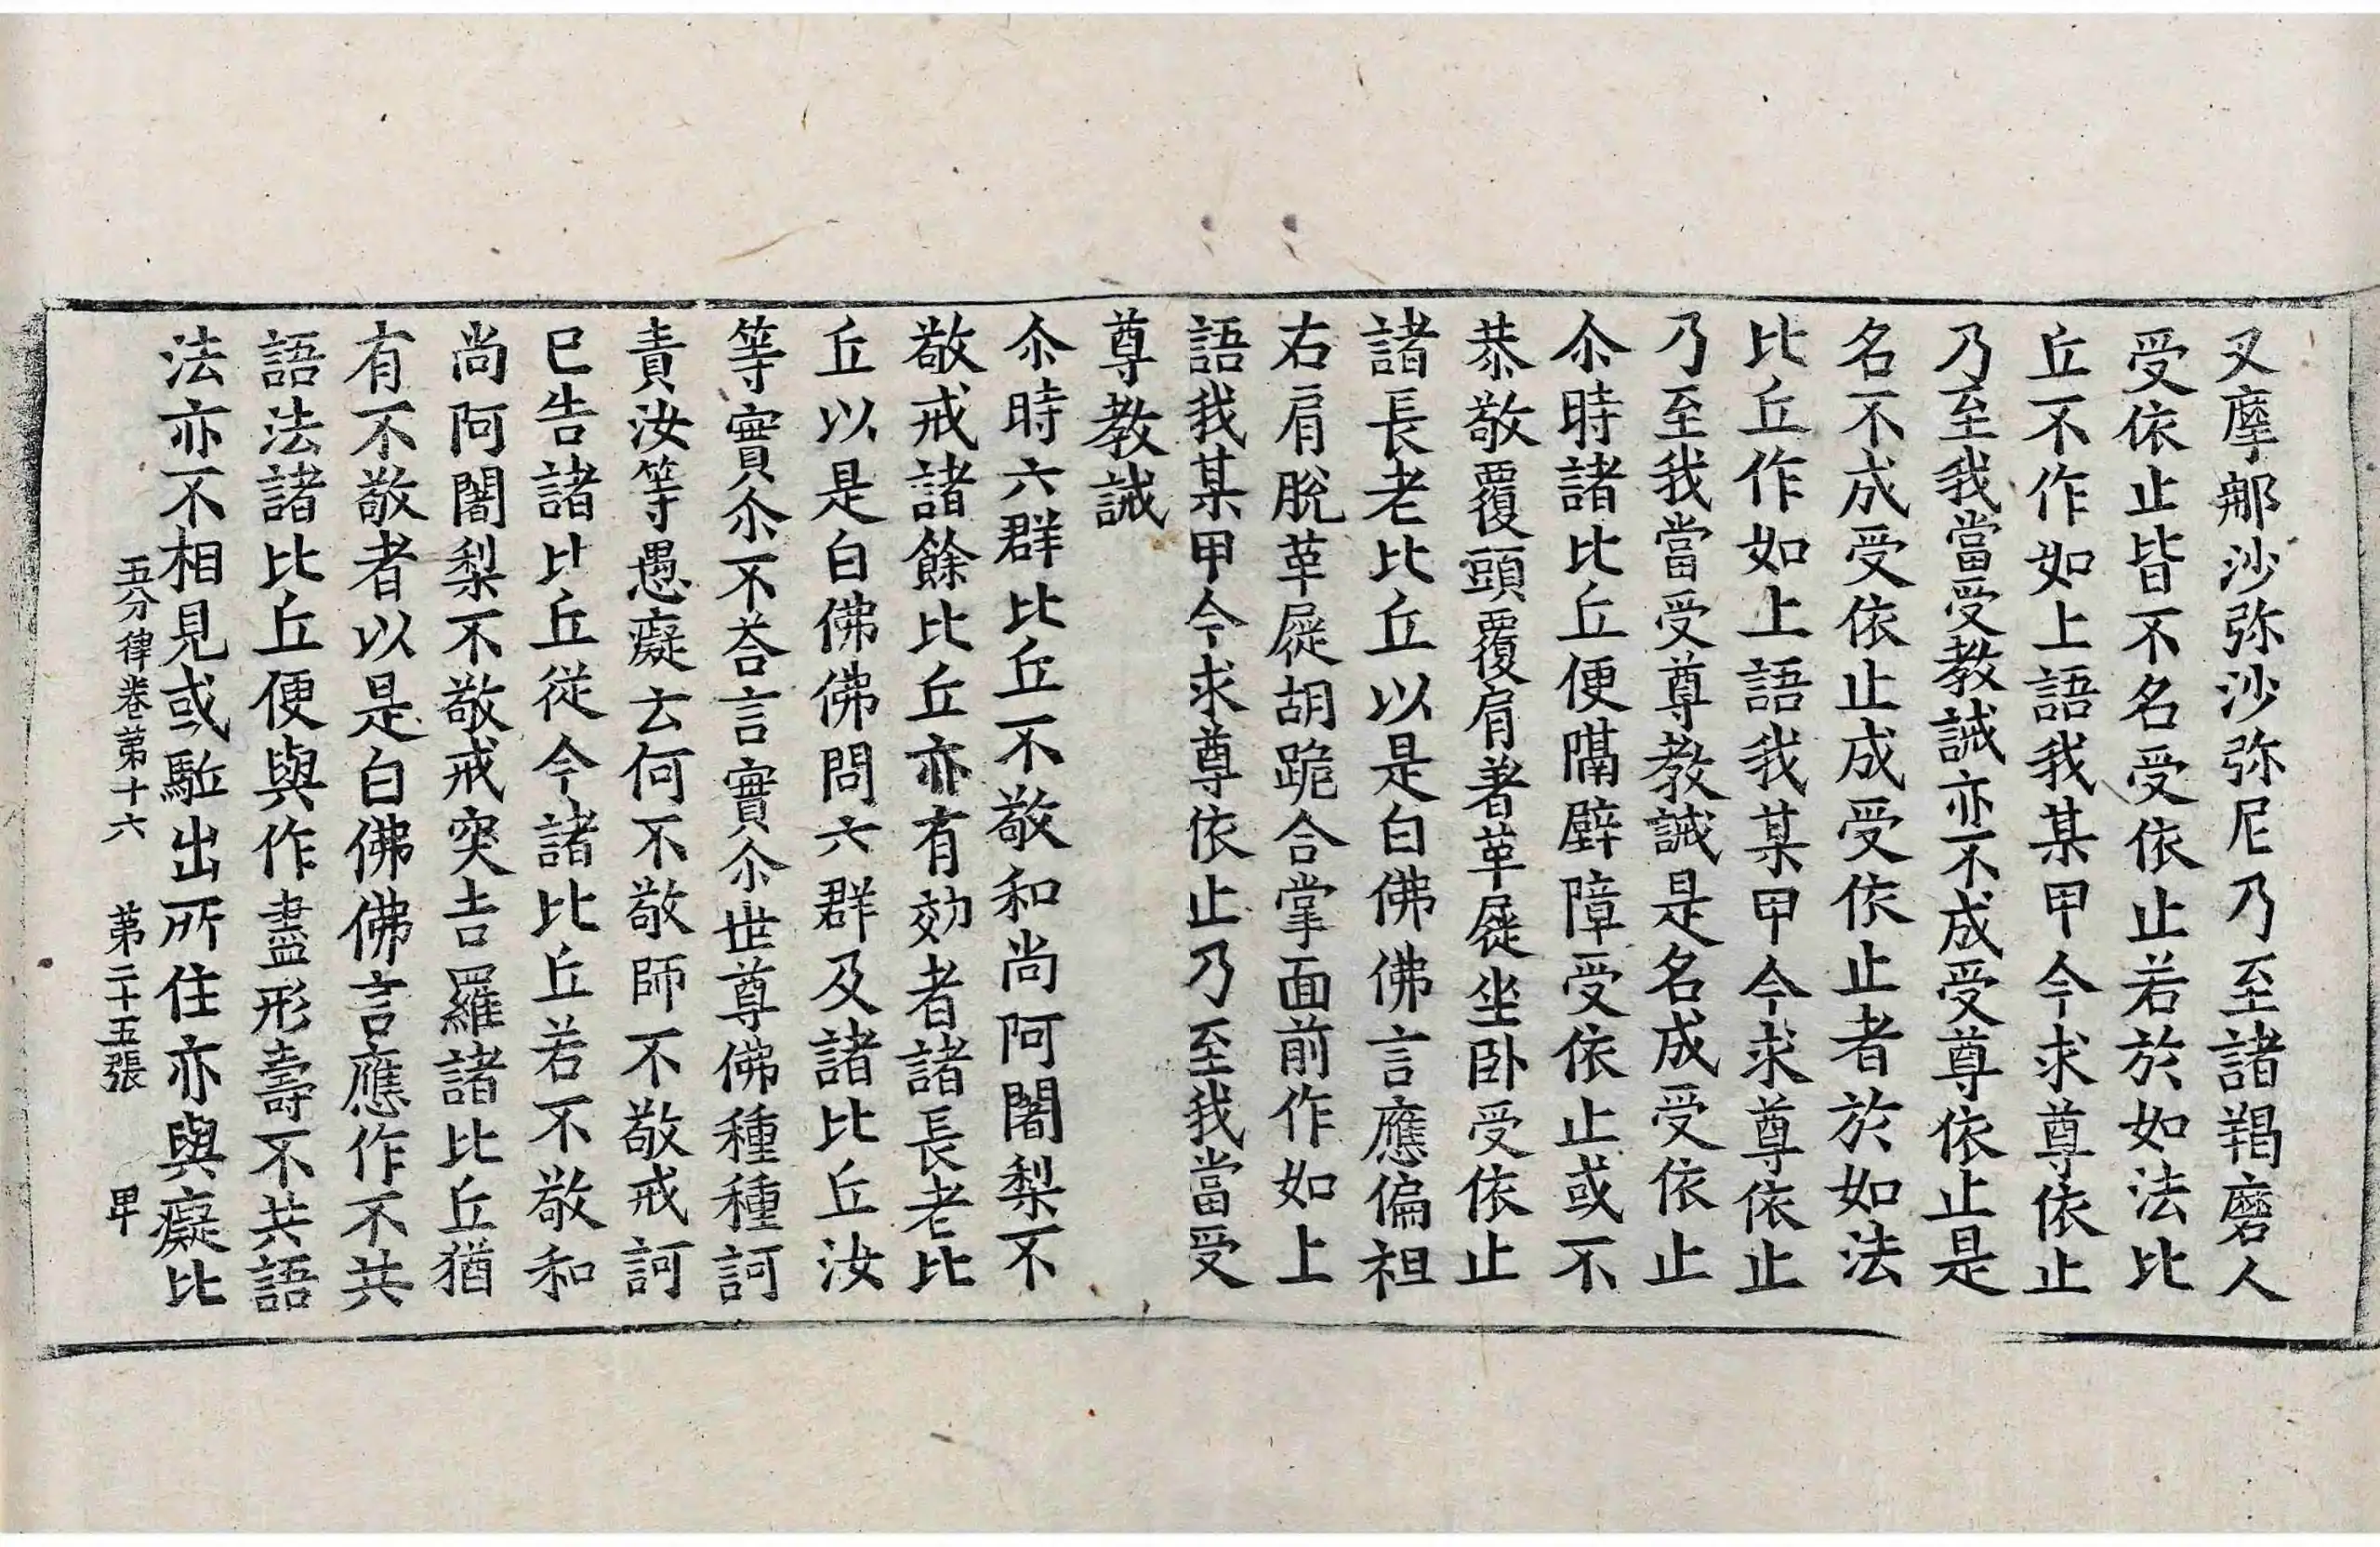 叉摩那沙弥沙弥尼乃至諸羯磨人
受依止皆不名受依止若於如法比
丘不作如上語我某甲今求尊依止
乃至我當受教誡亦不成受尊依止是
名不成受依止成受依止者於如法
比丘作如上語我某甲今求尊依止
乃至我當受尊教誡是名成受依止
尒時諸比丘便隔壁障受依止或不
恭敬覆頭覆肩著革屣坐卧受依止
諸長老比丘以是白佛佛言應偏袒
右肩脫革屣胡跪合掌面前作如上
語我某甲今求尊依止乃至我當受
尊教誡
尒時六群比丘不敬和尚阿闍梨不
敬戒諸餘比丘亦有効者諸長老比
丘以是白佛佛問六群及諸比丘汝
等實尒不荅言實尒世尊佛種種訶
責汝等愚癡云何不敬師不敬戒訶
已告諸比丘從今諸比丘若不敬和
尚阿闍梨不敬戒突吉羅諸比丘猶
有不敬者以是白佛佛言應作不共
語法諸比丘便與作盡形壽不共語
法亦不相見或駈出所住亦與癡比
五分律卷苐十六 苐二十五張 甲